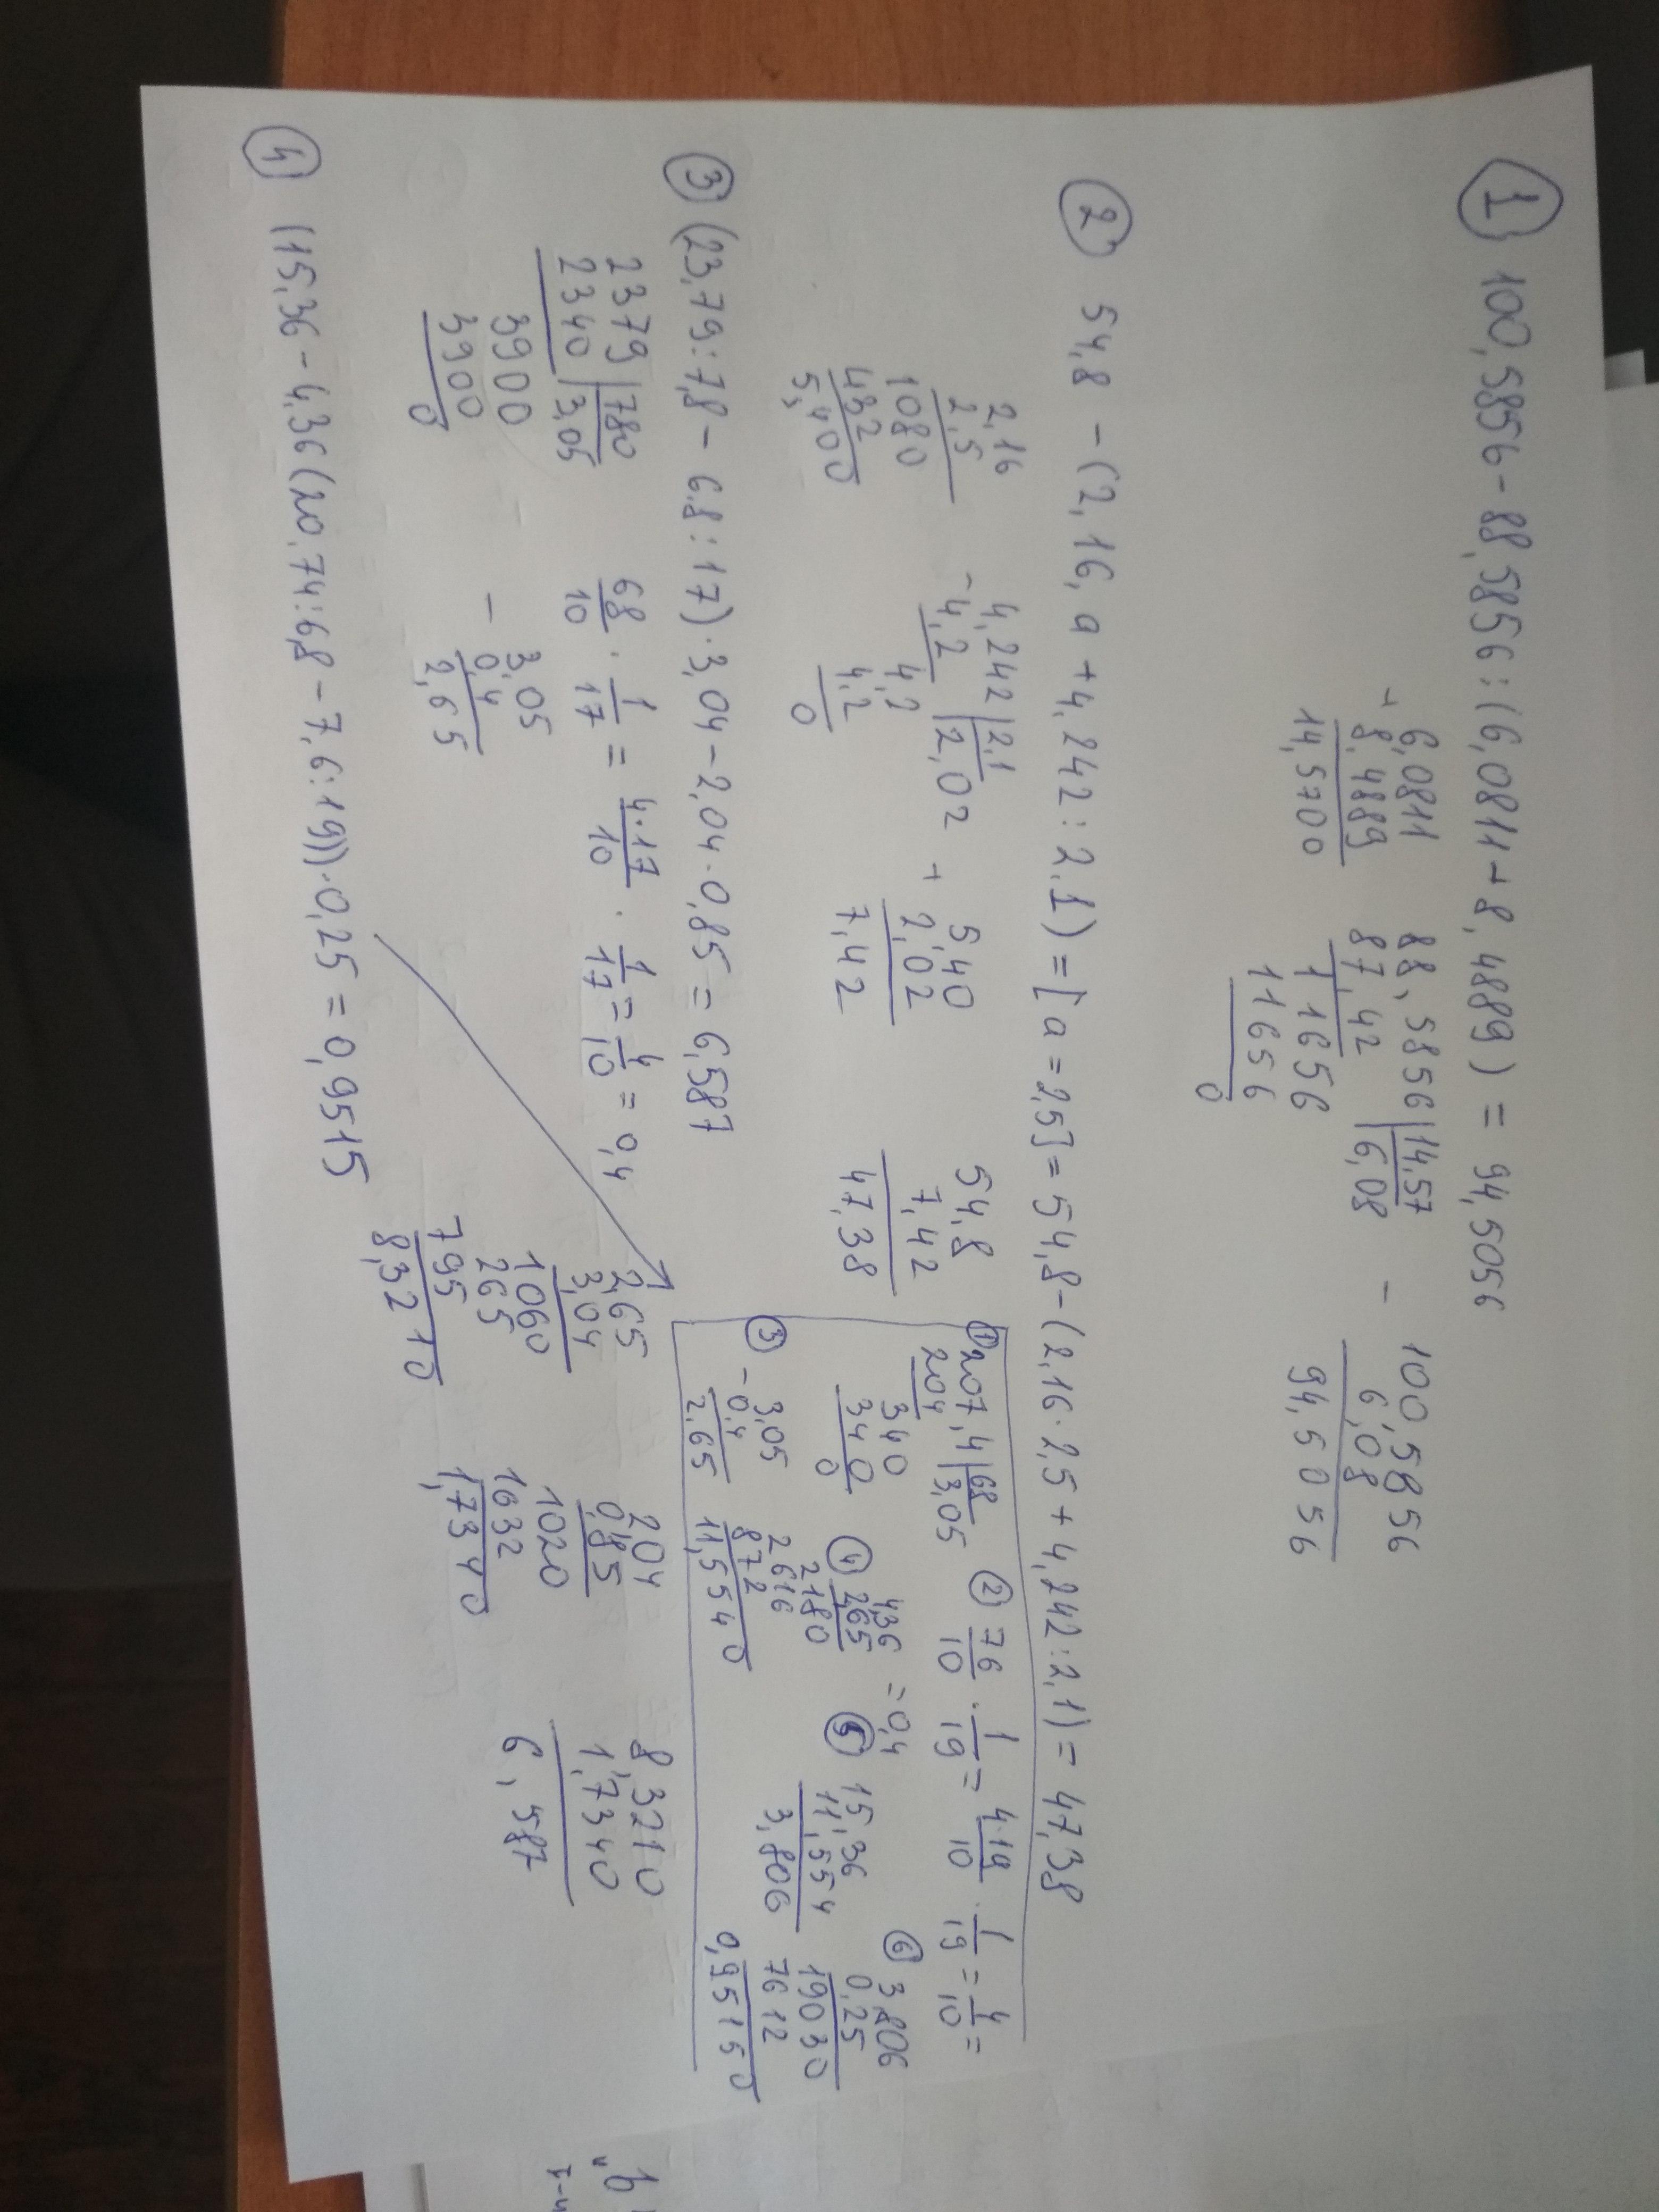 ① 100,5856 - 88,5856 : (6,0811 + 8,4889) = 94,5056
6,0811
+ 8,4889
14,5700
88,5856 | 14,57
87,42 | 6,08
1 1656
1 1656
0
- 100,5856
6,08
94,5056
② 54,8 - (2,16, a + 4,242 : 2.1) = [a = 2,5] = 54,8 - (2,16 · 2,5 + 4,242 : 2,1) = 47,38
2,16
2,5
1080
432
5,400
4,242 | 2,1
- 4,2 | 2,02
4,2
4,2
0
+ 5,40
2,02
7,42
54,8
7,42
47,38
③ (23,79 : 7,8 - 6.8 : 17) · 3,04 - 2,04 · 0,85 = 6,587
2379 | 780
2340 | 3,05
3900
3900
0
68/10 · 1/17 = 4·17/10 · 1/17 = 4/10 = 0,4
- 3,05
0,4
2,65
2,65
3,04
1060
265
795
8,3210
2,04
0,85
1020
1632
1,7340
8,3210
1,7340
6,587
④ (15,36 - 4,36 (20,74 : 6,8 - 7,6 : 19)) · 0,25 = 0,9515
① 207,4 | 68
204 | 3,05
340
340
0
② 76/10 · 1/19 = 4·19/10 · 1/19 = 4/10 =
= 0,4
③ - 3,05
0,4
2,65
④ 4,36
2,65
2180
2616
872
11,5540
⑤ 15,36
11,554
3,806
⑥ 3,806
0,25
19030
7612
0,95150